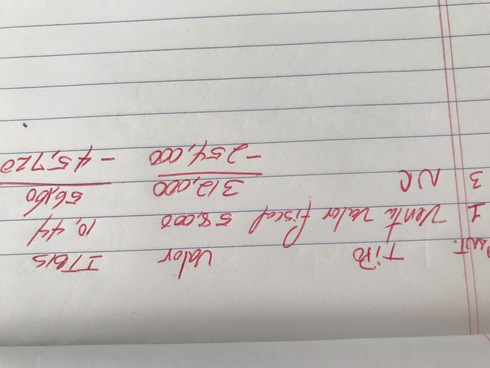 cant. Tipo Valor ITBIS
1 Venta valor fiscal 58,000 10,44
3 NC 312,000 56,160
-254,000 -45,720